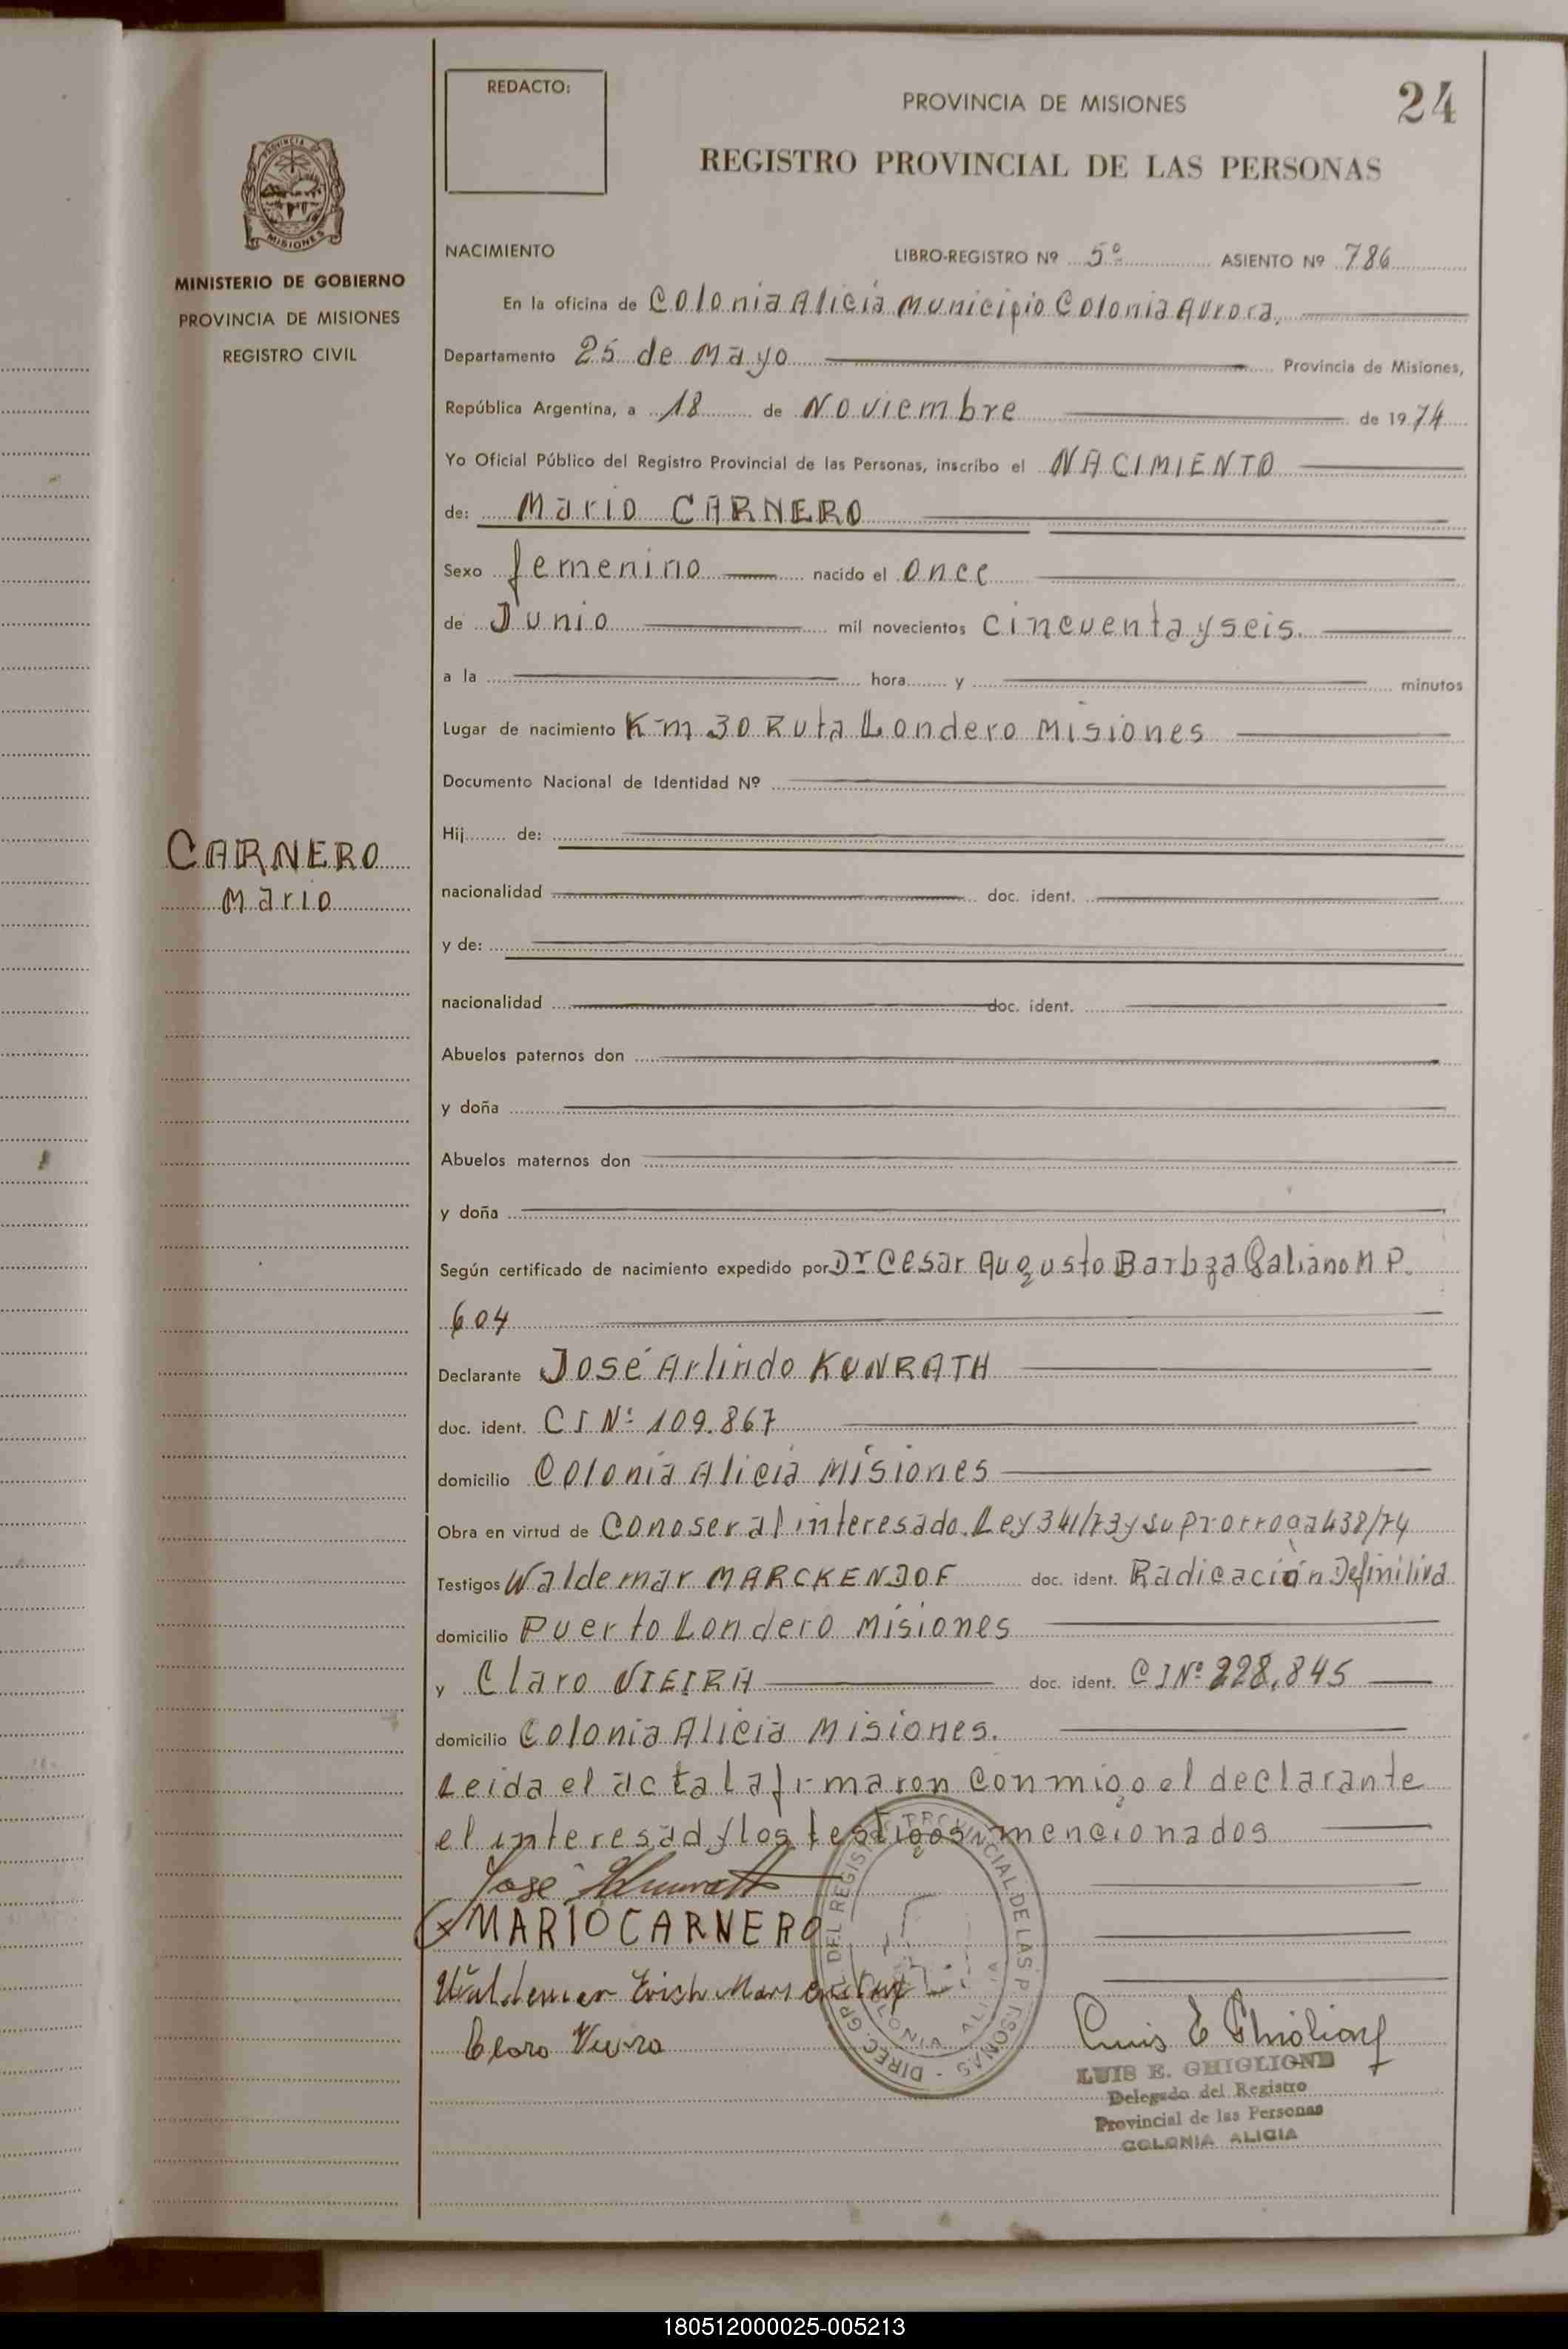 REDACTO:
PROVINCIA DE MISIONES
24
REGISTRO PROVINCIAL DE LAS PERSONAS
PROVINCIA DE
MISIONES
MINISTERIO DE GOBIERNO
PROVINCIA DE MISIONES
REGISTRO CIVIL
NACIMIENTO LIBRO-REGISTRO Nº 5º ASIENTO Nº 786
En la oficina de Colonia Alicia Municipio Colonia Aurora.
Departamento 25 de Mayo Provincia de Misiones,
República Argentina, a 18 de Noviembre de 1974
Yo Oficial Público del Registro Provincial de las Personas, inscribo el NACIMIENTO
de: Mario CARNERO
Sexo femenino nacido el once
de Junio mil novecientos cincuenta y seis.
a la hora y minutos
Lugar de nacimiento Km 30 Ruta Londero Misiones
Documento Nacional de Identidad Nº
CARNERO
Mario
Hij de:
nacionalidad doc. ident.
y de:
nacionalidad doc. ident.
Abuelos paternos don
y doña
Abuelos maternos don
y doña
Según certificado de nacimiento expedido por Dr Cesar Augusto Barbza Galiano M P.
604
Declarante José Arlindo KUNRATH
doc. ident. CI Nº 109.867
domicilio Colonia Alicia Misiones
Obra en virtud de Conoser al interesado. Ley 341/73 y su prorroga 438/74
Testigos Waldemar MARCKENDOF doc. ident. Radicación Definitiva
domicilio Puerto Londero Misiones
y Claro VIEIRA doc. ident. CI Nº 228.845
domicilio Colonia Alicia Misiones.
Leida el acta la firmaron conmigo el declarante
el interesad y los testigos mencionados
José Kunrath
x MARIO CARNERO
Waldemar Erich
Claro Vieira
DIREC. GRAL. DEL REGISTRO PROVINCIAL DE LAS PERSONAS - COLONIA ALICIA
Luis E Ghiglione
LUIS E. GHIGLIONE
Delegado del Registro
Provincial de las Personas
COLONIA ALICIA
180512000025-005213